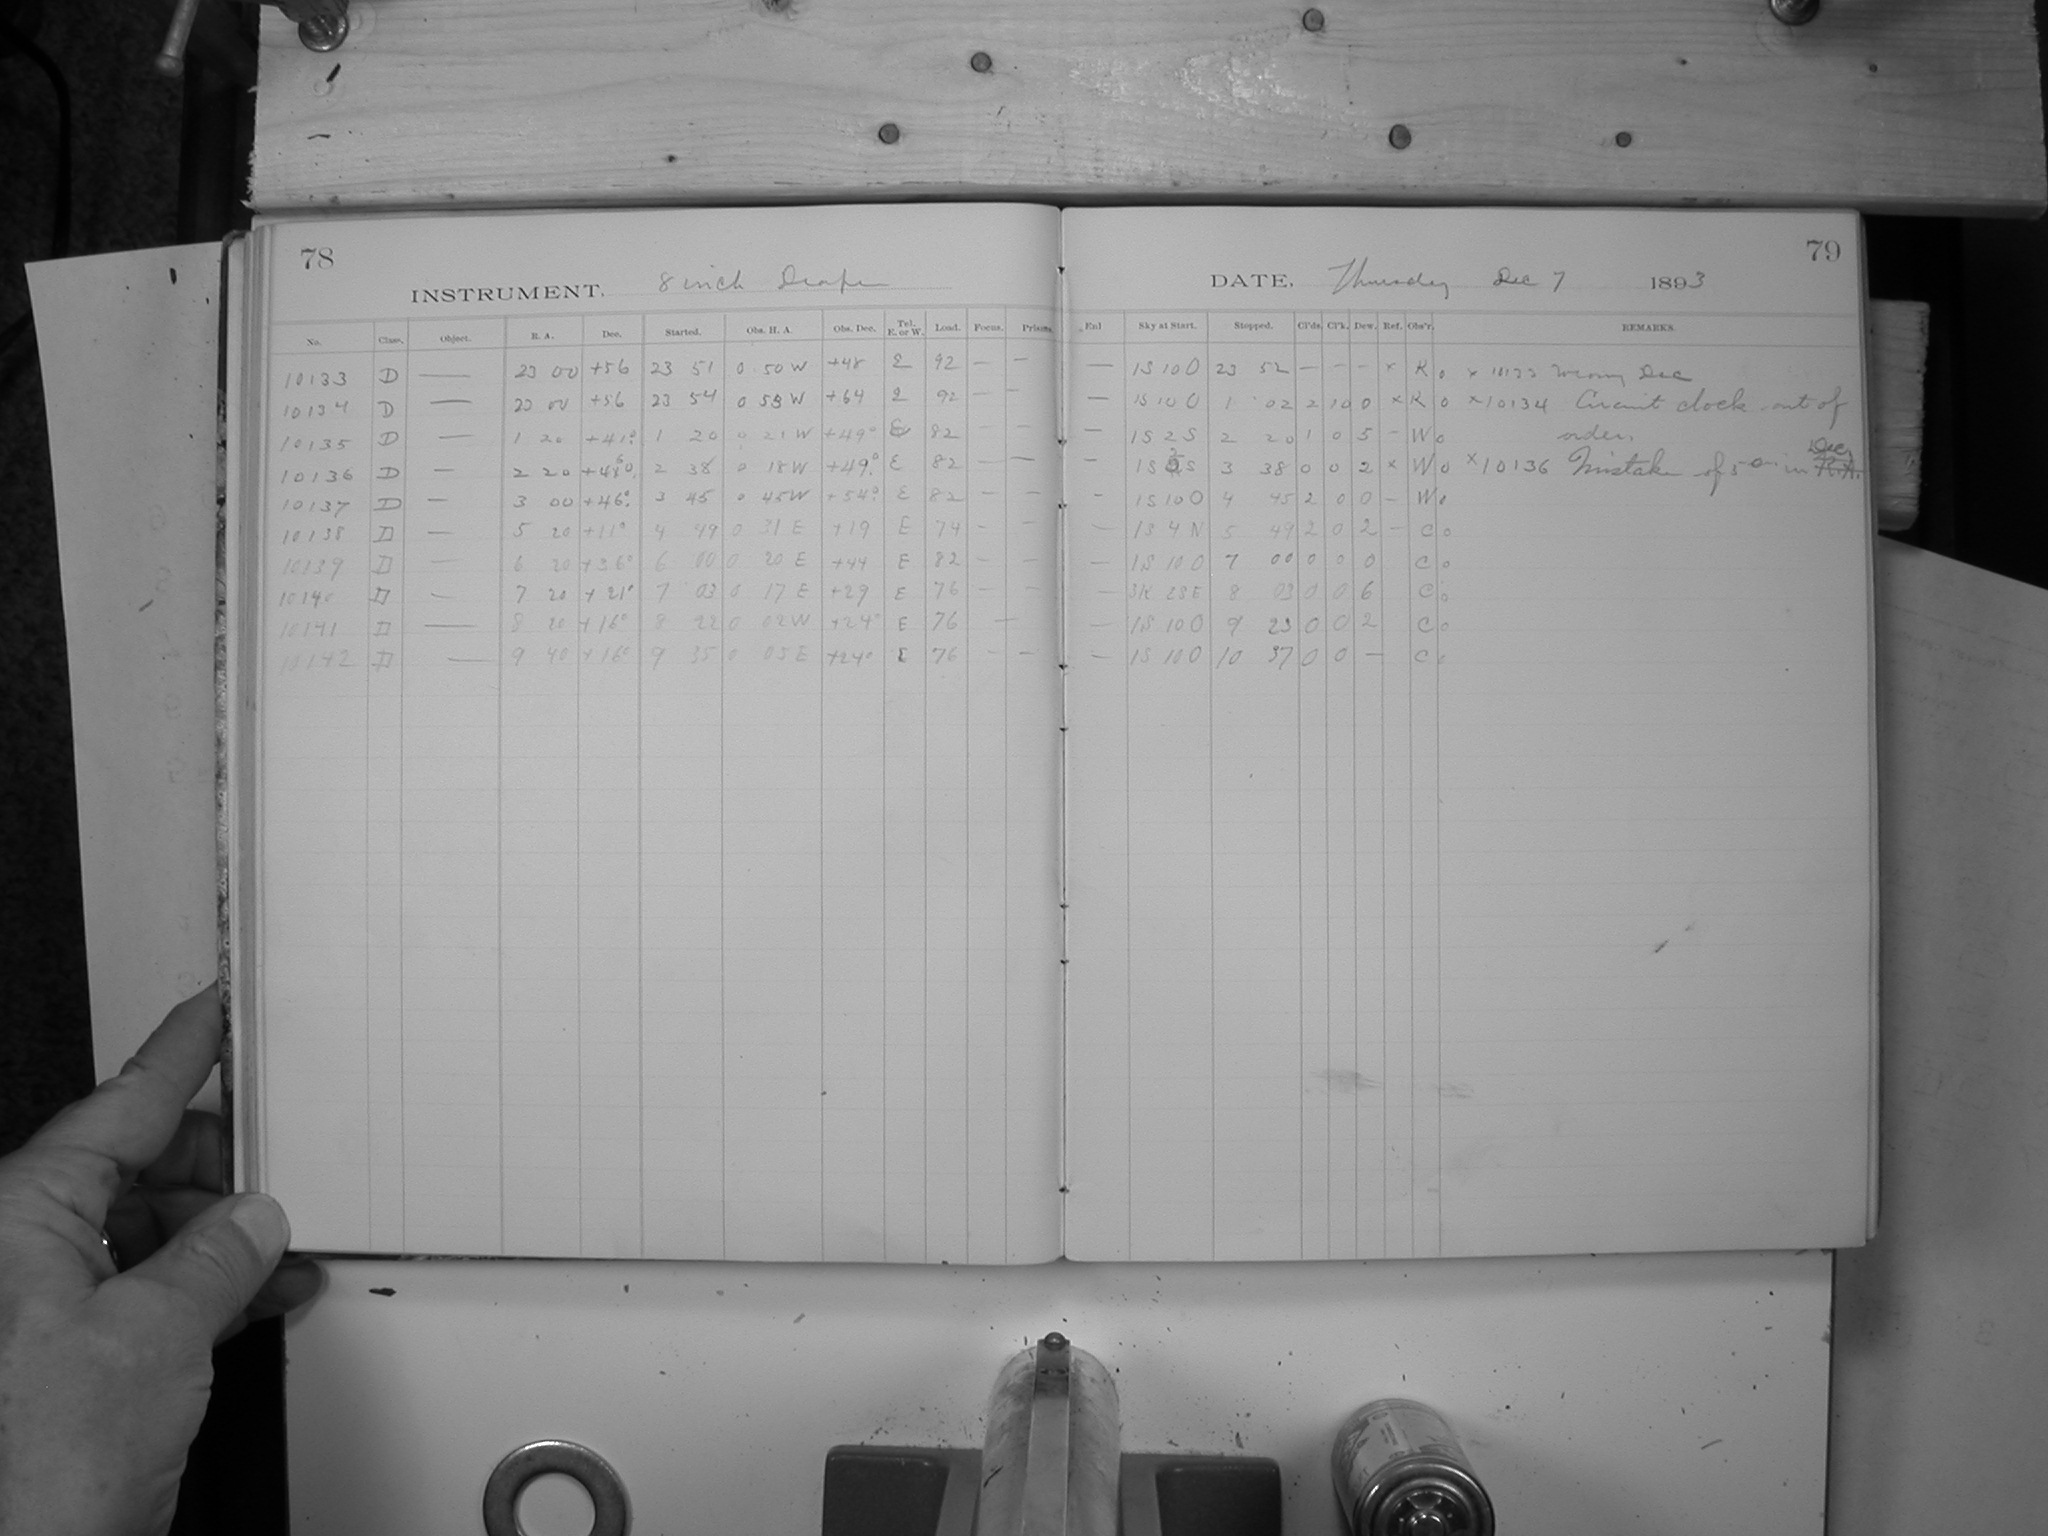 78
79
INSTRUMENT. 8 inch Draper
DATE, Thursday Dec 7 1893
No. Class. Object. R. A. Dec. Started. Obs. H. A. Obs. Dec. Tel. E. or W. Load. Focus. Prisms. Enl Sky at Start. Stopped. Cl'ds. Cl'k. Dew. Ref. Obs'r. REMARKS.
10133 D — 23 00 +56 23 51 0 50 W +48 E 92 — — — 1S 10 0 23 52 — — — x R o x 10133 Wrong Dec
10134 D — 23 00 +56 23 54 0 53 W +64 E 92 — — — 1S 10 0 1 02 2 10 0 x R o x 10134 Circuit clock out of
10135 D — 1 20 +41° 1 20 0 21 W +49° E 82 — — — 1S 2 S 2 20 1 0 5 — W o order.
10136 D — 2 20 2 38 0 18 W +49° E 82 — — — 1S S 3 38 0 0 2 x W o x 10136 Mistake of 5 in R.A. Dec.
10137 D — 3 00 +46° 3 45 0 45 W +54° E 82 — — — 1S 10 0 4 45 2 0 0 — W o
10138 D — 5 20 +11° 4 49 0 31 E +19 E 74 — — — 1S 4 N 5 49 2 0 2 — C o
10139 D — 6 20 +36° 6 00 0 20 E +44 E 82 — — — 1S 10 0 7 00 0 0 0 C o
10140 D — 7 20 +21° 7 03 0 17 E +29 E 76 — — — SK 2 SE 8 03 0 0 6 C o
10141 D — 8 20 +16° 8 22 0 02 W +24° E 76 — — 1S 10 0 9 23 0 0 2 C o
10142 D — 9 40 +16° 9 35 0 05 E +24° E 76 — — — 1S 10 0 10 37 0 0 — C o